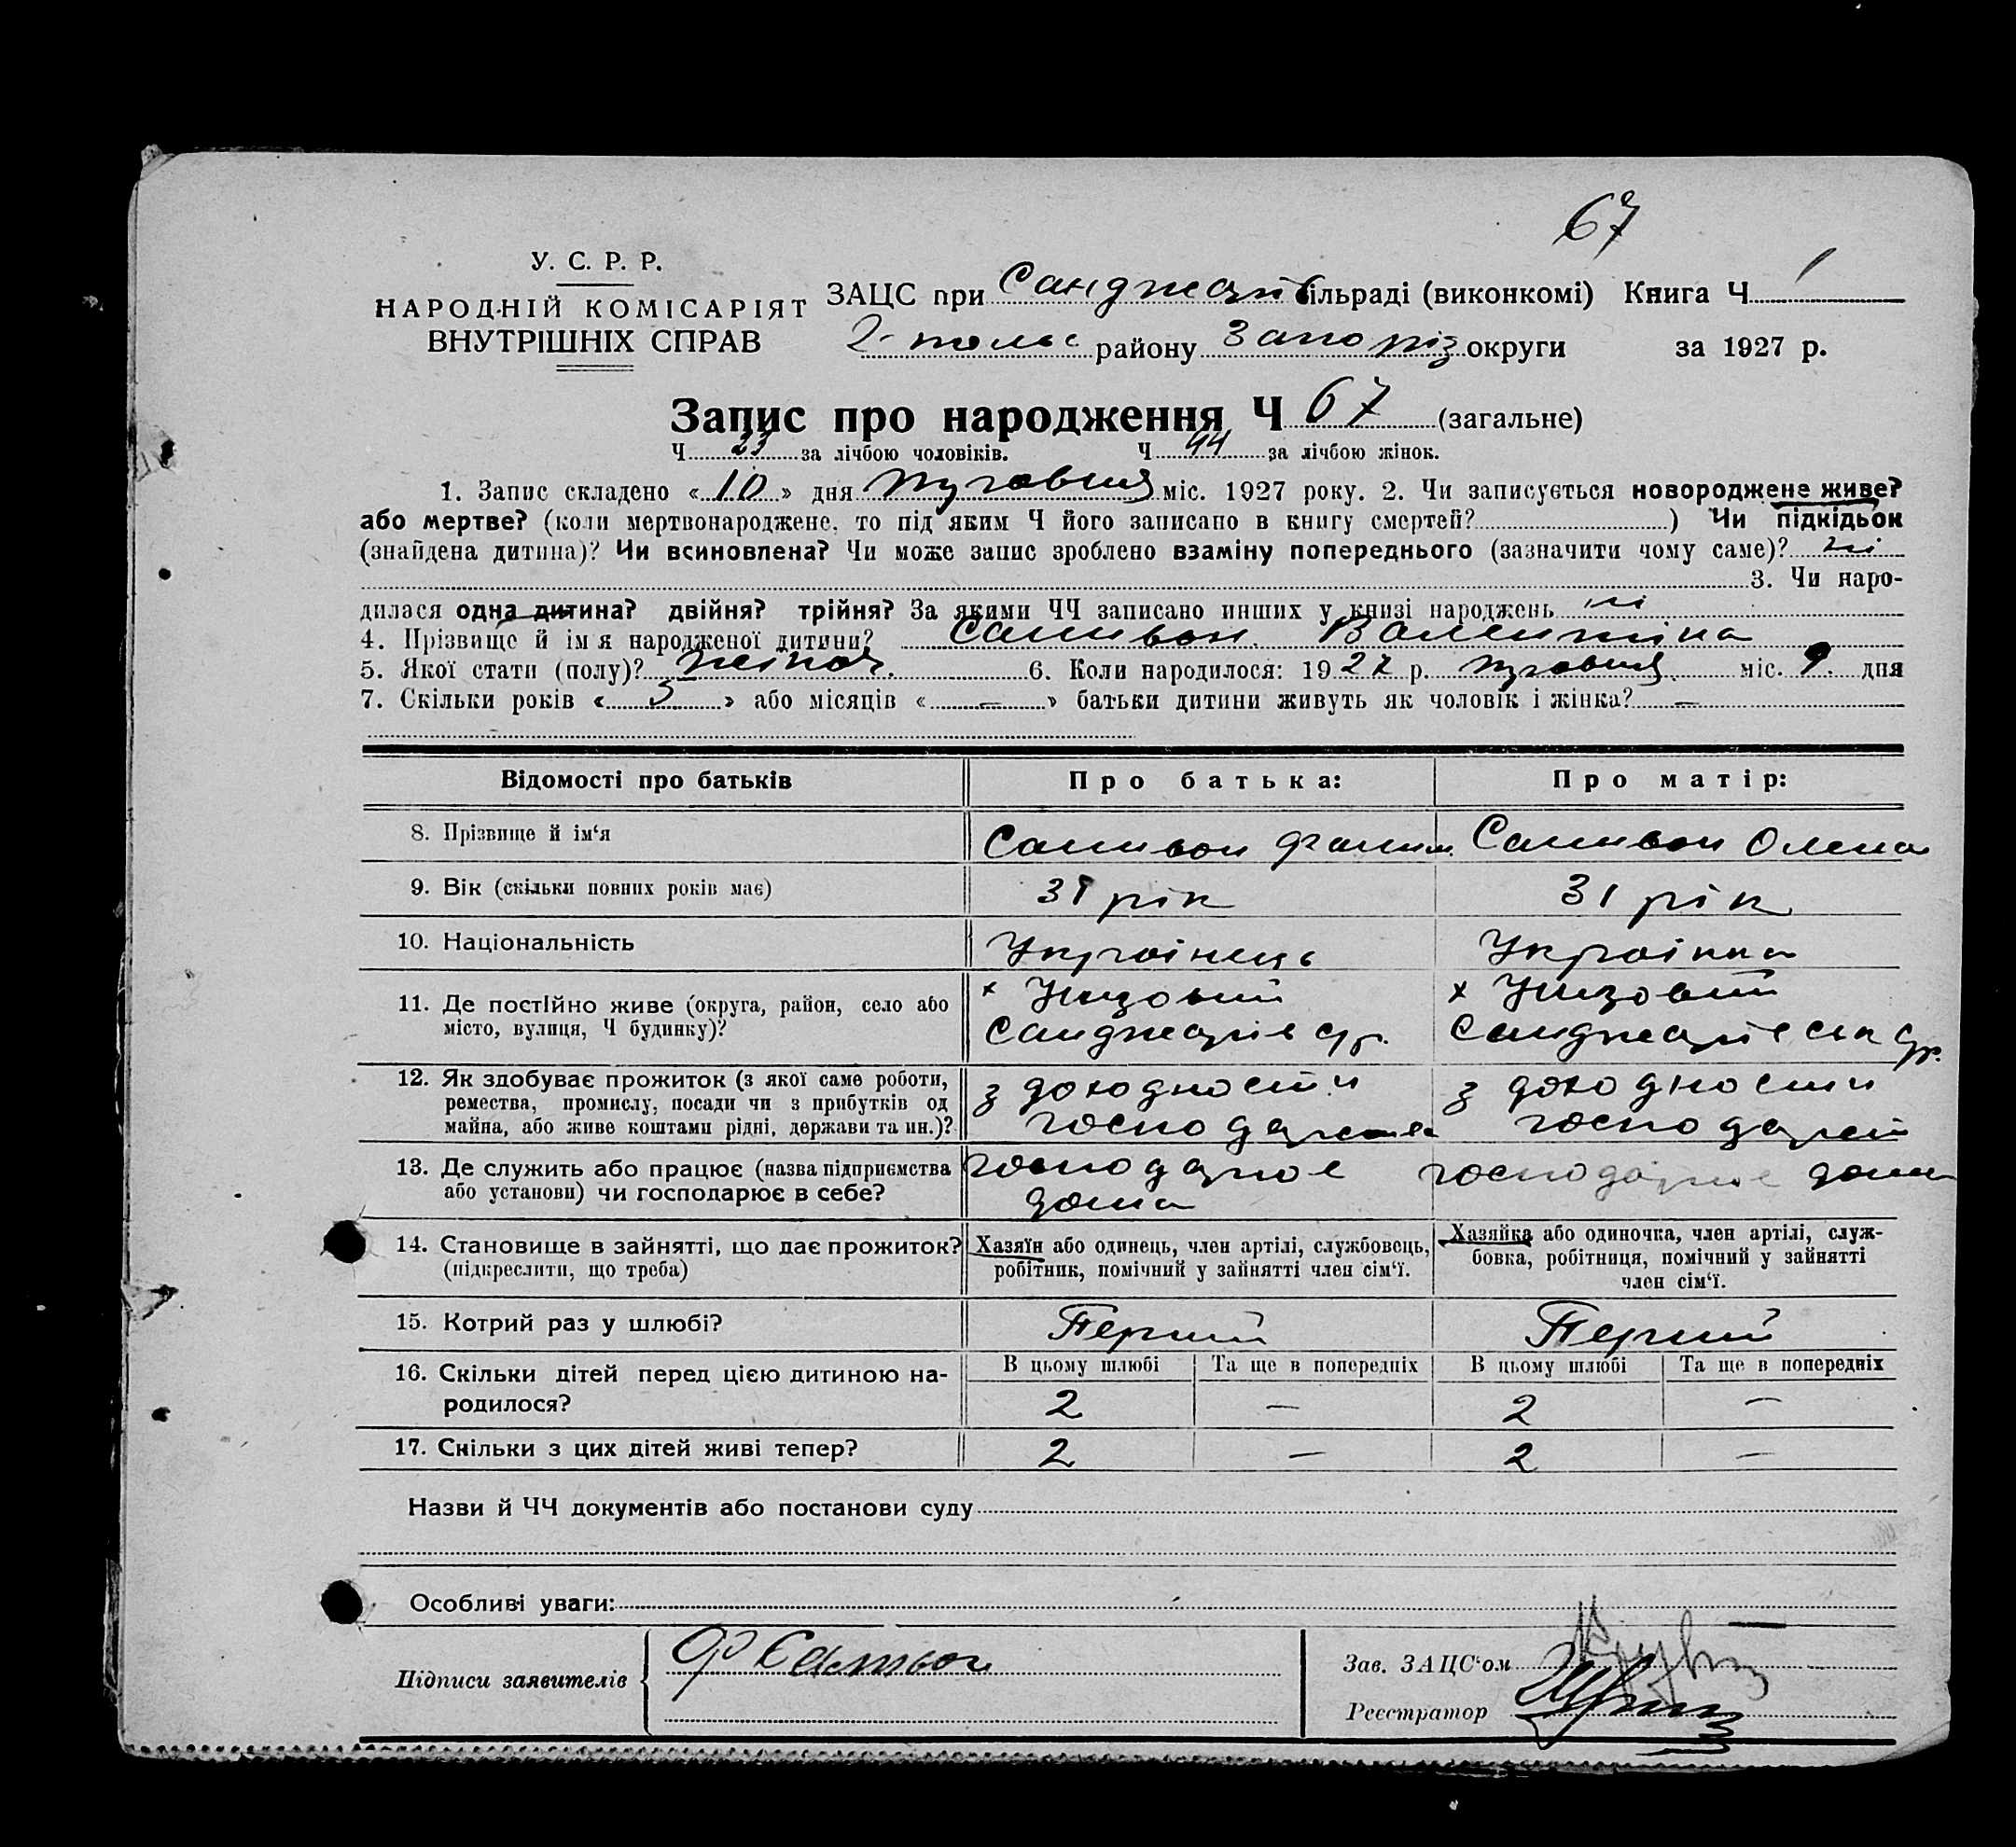 67
У. С. Р. Р.
НАРОДНІЙ КОМІСАРІЯТ
ВНУТРІШНІХ СПРАВ
ЗАЦС при Санджар сільраді (виконкомі) Книга Ч 1
району Запоріз округи за 1927 р.
Запис про народження Ч 67 (загальне)
Ч 23 за лічбою чоловіків. Ч 44 за лічбою жінок.
1. Запис складено « 10 » дня жовтня міс. 1927 року. 2. Чи записується новороджене живе?
або мертве? (коли мертвонароджене, то під яким Ч його записано в книгу смертей? ) Чи підкідьок
(знайдена дитина)? Чи всиновлена? Чи може запис зроблено взаміну попереднього (зазначити чому саме)? ні
3. Чи наро-
дилася одна дитина? двійня? трійня? За якими ЧЧ записано инших у книзі народжень ні
4. Прізвище й ім я народженої дитини? Самивон Валентина
5. Якої стати (полу)? жіноч. 6. Коли народилося: 1927 р. жовтня міс. 9 дня
7. Скільки років « 5 » або місяців « — » батьки дитини живуть як чоловік і жінка? —
Відомості про батьків Про батька: Про матір:
8. Прізвище й ім‘я Самивон Самивон Олена
9. Вік (скільки повних років має) 31 рік 31 рік
10. Національність Українець Українка
11. Де постійно живе (округа, район, село або
місто, вулиця, Ч будинку)?
х Низовий х Низовий
Санджарів с/р. Санджарівськ с/р.
12. Як здобуває прожиток (з якої саме роботи,
ремества, промислу, посади чи з прибутків од
майна, або живе коштами рідні, держави та ин.)?
з доходности з доходности
господарства господарств
13. Де служить або працює (назва підприємства
або установи) чи господарює в себе?
господарює господарює дома
дома
14. Становище в зайнятті, що дає прожиток?
(підкреслити, що треба)
Хазяїн або одинець, член артілі, службовець,
робітник, помічний у зайнятті член сім‘ї.
Хазяйка або одиночка, член артілі, служ-
бовка, робітниця, помічний у зайнятті
член сім‘ї.
15. Котрий раз у шлюбі? Перший Перший
16. Скільки дітей перед цією дитиною на-
родилося?
В цьому шлюбі Та ще в попередніх В цьому шлюбі Та ще в попередніх
2 — 2 —
17. Скільки з цих дітей живі тепер? 2 — 2 —
Назви й ЧЧ документів або постанови суду
Особливі уваги:
Підписи заявителів
Зав. ЗАЦС‘ом
Реєстратор